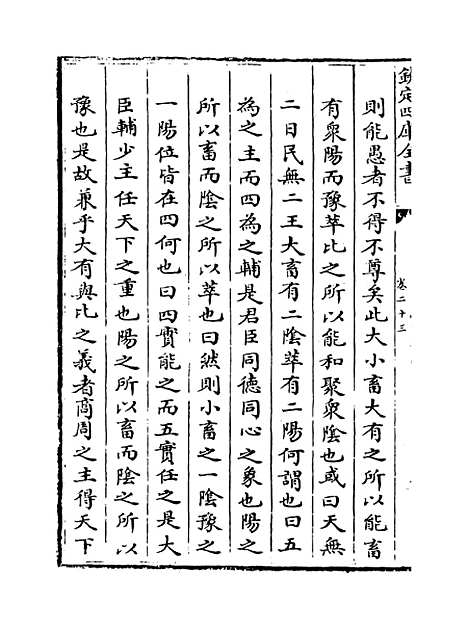 欽定四庫全書
卷二十三
則能愚者不得不尊矣此大小畜大有之所以能畜
有衆陽而豫萃比之所以能和聚衆陰也或曰天無
二日民無二王大畜有二陰萃有二陽何謂也曰五
為之主而四為之輔是君臣同徳同心之象也陽之
所以畜而陰之所以萃也曰然則小畜之一陰豫之
一陽位皆在四何也曰四實能之而五實任之是大
臣輔少主任天下之重也陽之所以畜而陰之所以
豫也是故兼乎大有與比之義者商周之主得天下